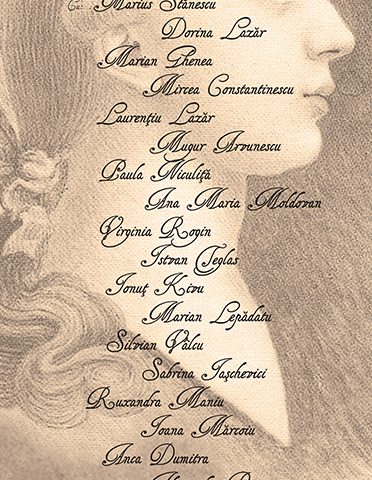 Cu: Marius Stănescu
Dorina Lazăr
Marian Ghenea
Mircea Constantinescu
Laurenţiu Lazăr
Mugur Arvunescu
Paula Niculiţă
Ana Maria Moldovan
Virginia Rogin
Istvan Teglas
Ionuţ Kivu
Marian Lepădatu
Silvian Vâlcu
Sabrina Iaşchevici
Ruxandra Maniu
Ioana Mărcoiu
Anca Dumitra